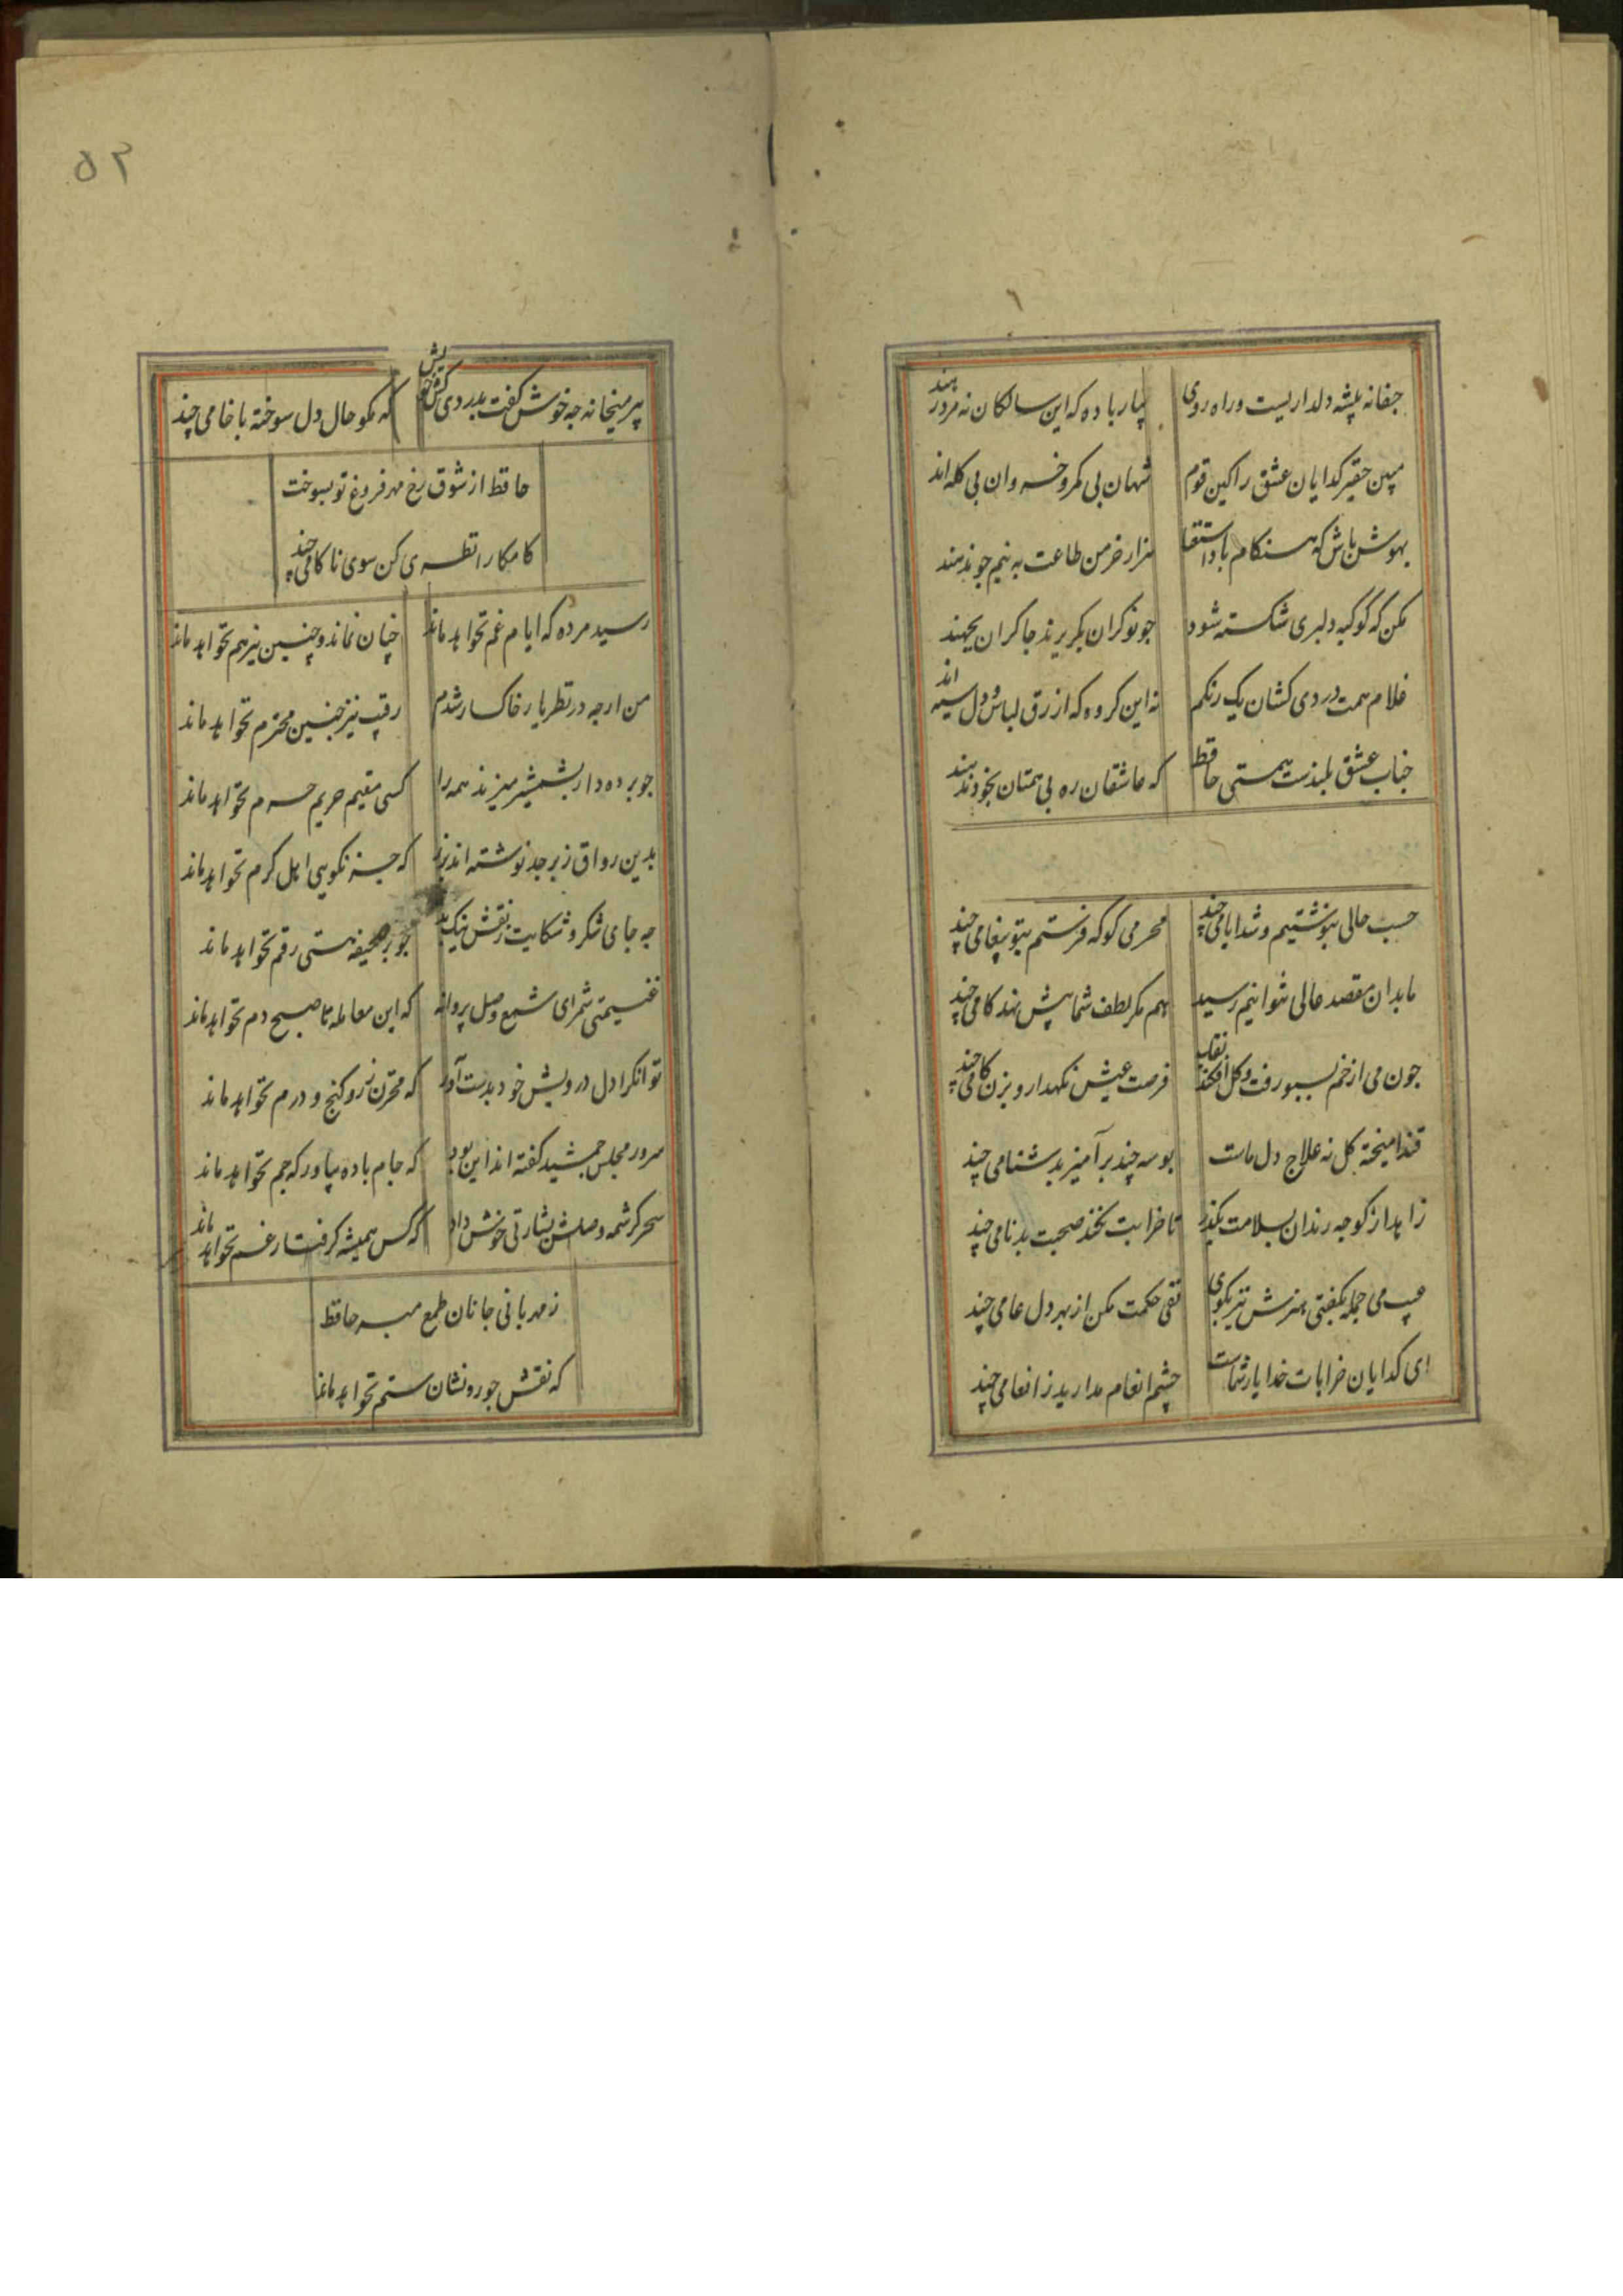 جفا نه پیشه دلداریست وراه روی
بیار باده که این سالکان نه مرد رهند
مبین حقیر کدایان عشق را کین قوم
شهان بی کمر و خسروان بی کله اند
بهوش باش که هنکام باد استغنا
هزار خرمن طاعت به نیم جو ندهند
مکن که کوکبه دلبری شکسته شود
جو نوکران بکریزند جاکران بجهند
غلام همت دردی کشان یک رنکم
نه این کروه که ازرق لباس و دل سیه اند
جناب عشق بلندست همتی حافظ
که عاشقان ره بی همتان بخود ندهند
حسب حالی ننوشتیم و شد ایامی چند
محرمی کو که فرستم بتو پیغامی چند
ما بدان مقصد عالی نتوانیم رسید
هم مکر لطف شما پیش نهد کامی چند
جون می از خم بسبو رفت و کل افکند نقاب
فرصت عیش نکهدار و بزن کامی چند
قند امیخته کل نه علاج دل ماست
بوسه چند برآمیز بدشنامی چند
زاهد از کوجه رندان بسلامت بکذر
تا خرابت نکند صحبت بدنامی چند
عیب می جمله بکفتی هنرش نیز بکوی
نفی حکمت مکن از بهر دل عامی چند
ای کدایان خرابات خدا یار شماست
چشم انعام مدارید ز انعامی چند
۵۲
پیر میخانه جه خوش کفت بدردی کش خویش
که مکو حال دل سوخته با خامی چند
حافظ از شوق رخ مهر فروغ تو بسوخت
کامکارا نظری کن سوی ناکامی چند
رسید مژده که ایام غم نخواهد ماند
چنان نماند و چنین نیز هم نخواهد ماند
من ارجه در نظر یار خاکسار شدم
رقیب نیز جنین محترم نخواهد ماند
جو پرده دار بشمشیر میزند همه را
کسی مقیم حریم حرم نخواهد ماند
بدین رواق زبرجد نوشته اند بزر
که جز نکویی اهل کرم نخواهد ماند
جه جای شکر و شکایت ز نقش نیک و بد
جو بر صحیفه هستی رقم نخواهد ماند
غنیمتی شمر ای شمع وصل پروانه
که این معامله تا صبح دم نخواهد ماند
توانکرا دل درویش خود بدست آور
که مخزن زر و کنج و درم نخواهد ماند
سرور مجلس جمشید کفته اند این بود
که جام باده بیاور که جم نخواهد ماند
سحر کرشمه وصلش بشارتی خوش داد
که کس همیشه کرفتار غم نخواهد ماند
ز مهربانی جانان طمع مبر حافظ
که نقش جور و نشان ستم نخواهد ماند